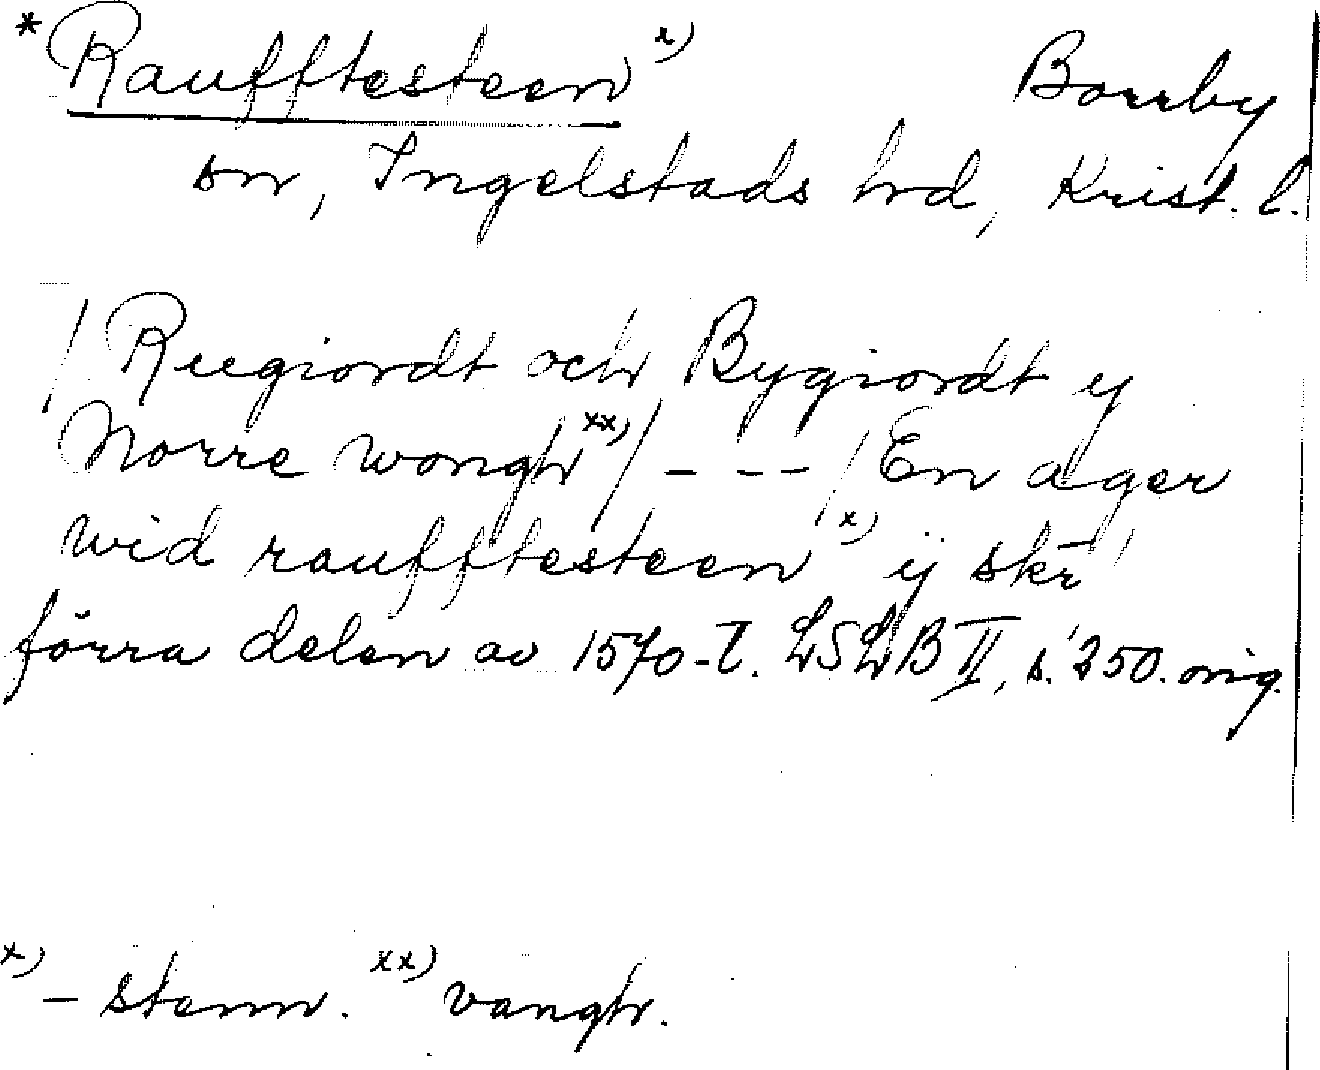 *Raufftesteen x) Borrby
sn, Ingelstads hd, Krist. l.
/ Reegiordt och Bygiordt y
Norre wongh xx) / - - - / En ager
wid raufftesteen x) ij skr̄ /
förra delen av 1570-t. LSLB II, s. 250. orig.
x) - stenn. xx) vangh.